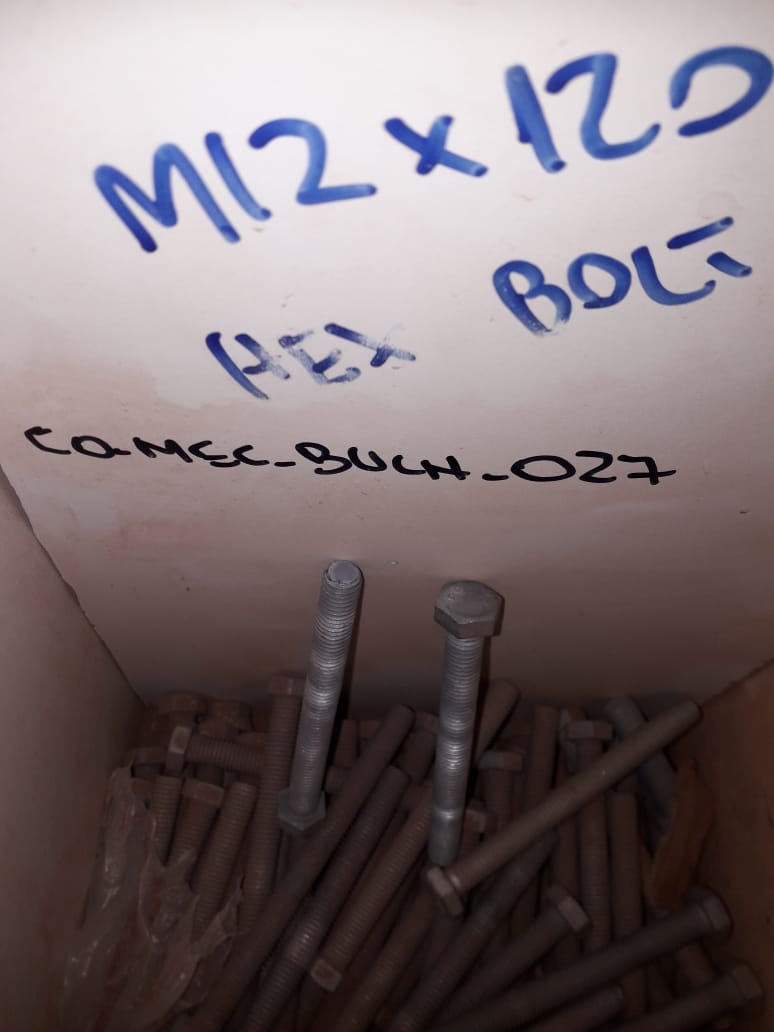 M12 x 120
HEX BOLT
CO-MEC-BUCH-027